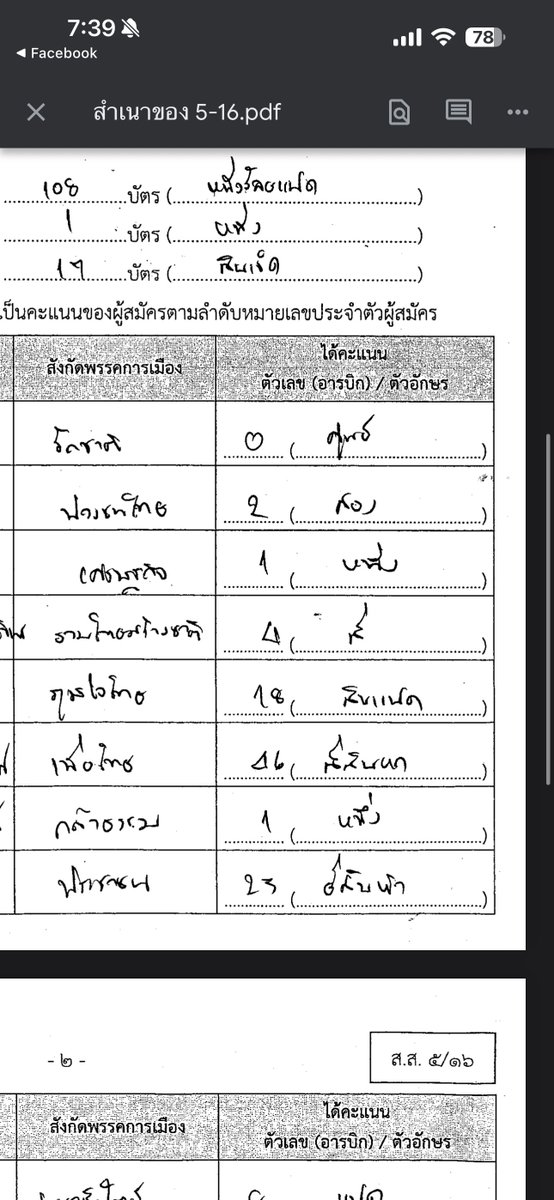 7:39
78
Facebook
สำเนาของ 5-16.pdf
108 บัตร ( หนึ่งร้อยแปด )
1 บัตร ( หนึ่ง )
17 บัตร ( สิบเจ็ด )
เป็นคะแนนของผู้สมัครตามลำดับหมายเลขประจำตัวผู้สมัคร
สังกัดพรรคการเมือง ได้คะแนน
ตัวเลข (อารบิก) / ตัวอักษร
รักชาติ 0 ( ศูนย์ )
ปวงชนไทย 2 ( สอง )
เศรษฐกิจ 1 ( หนึ่ง )
รวมไทยสร้างชาติ 4 ( สี่ )
ภูมิใจไทย 18 ( สิบแปด )
เพื่อไทย 46 ( สี่สิบหก )
กล้าธรรม 1 ( หนึ่ง )
ประชาชน ( )
- ๒ -
ส.ส. ๕/๑๖
สังกัดพรรคการเมือง ได้คะแนน
ตัวเลข (อารบิก) / ตัวอักษร
แปด